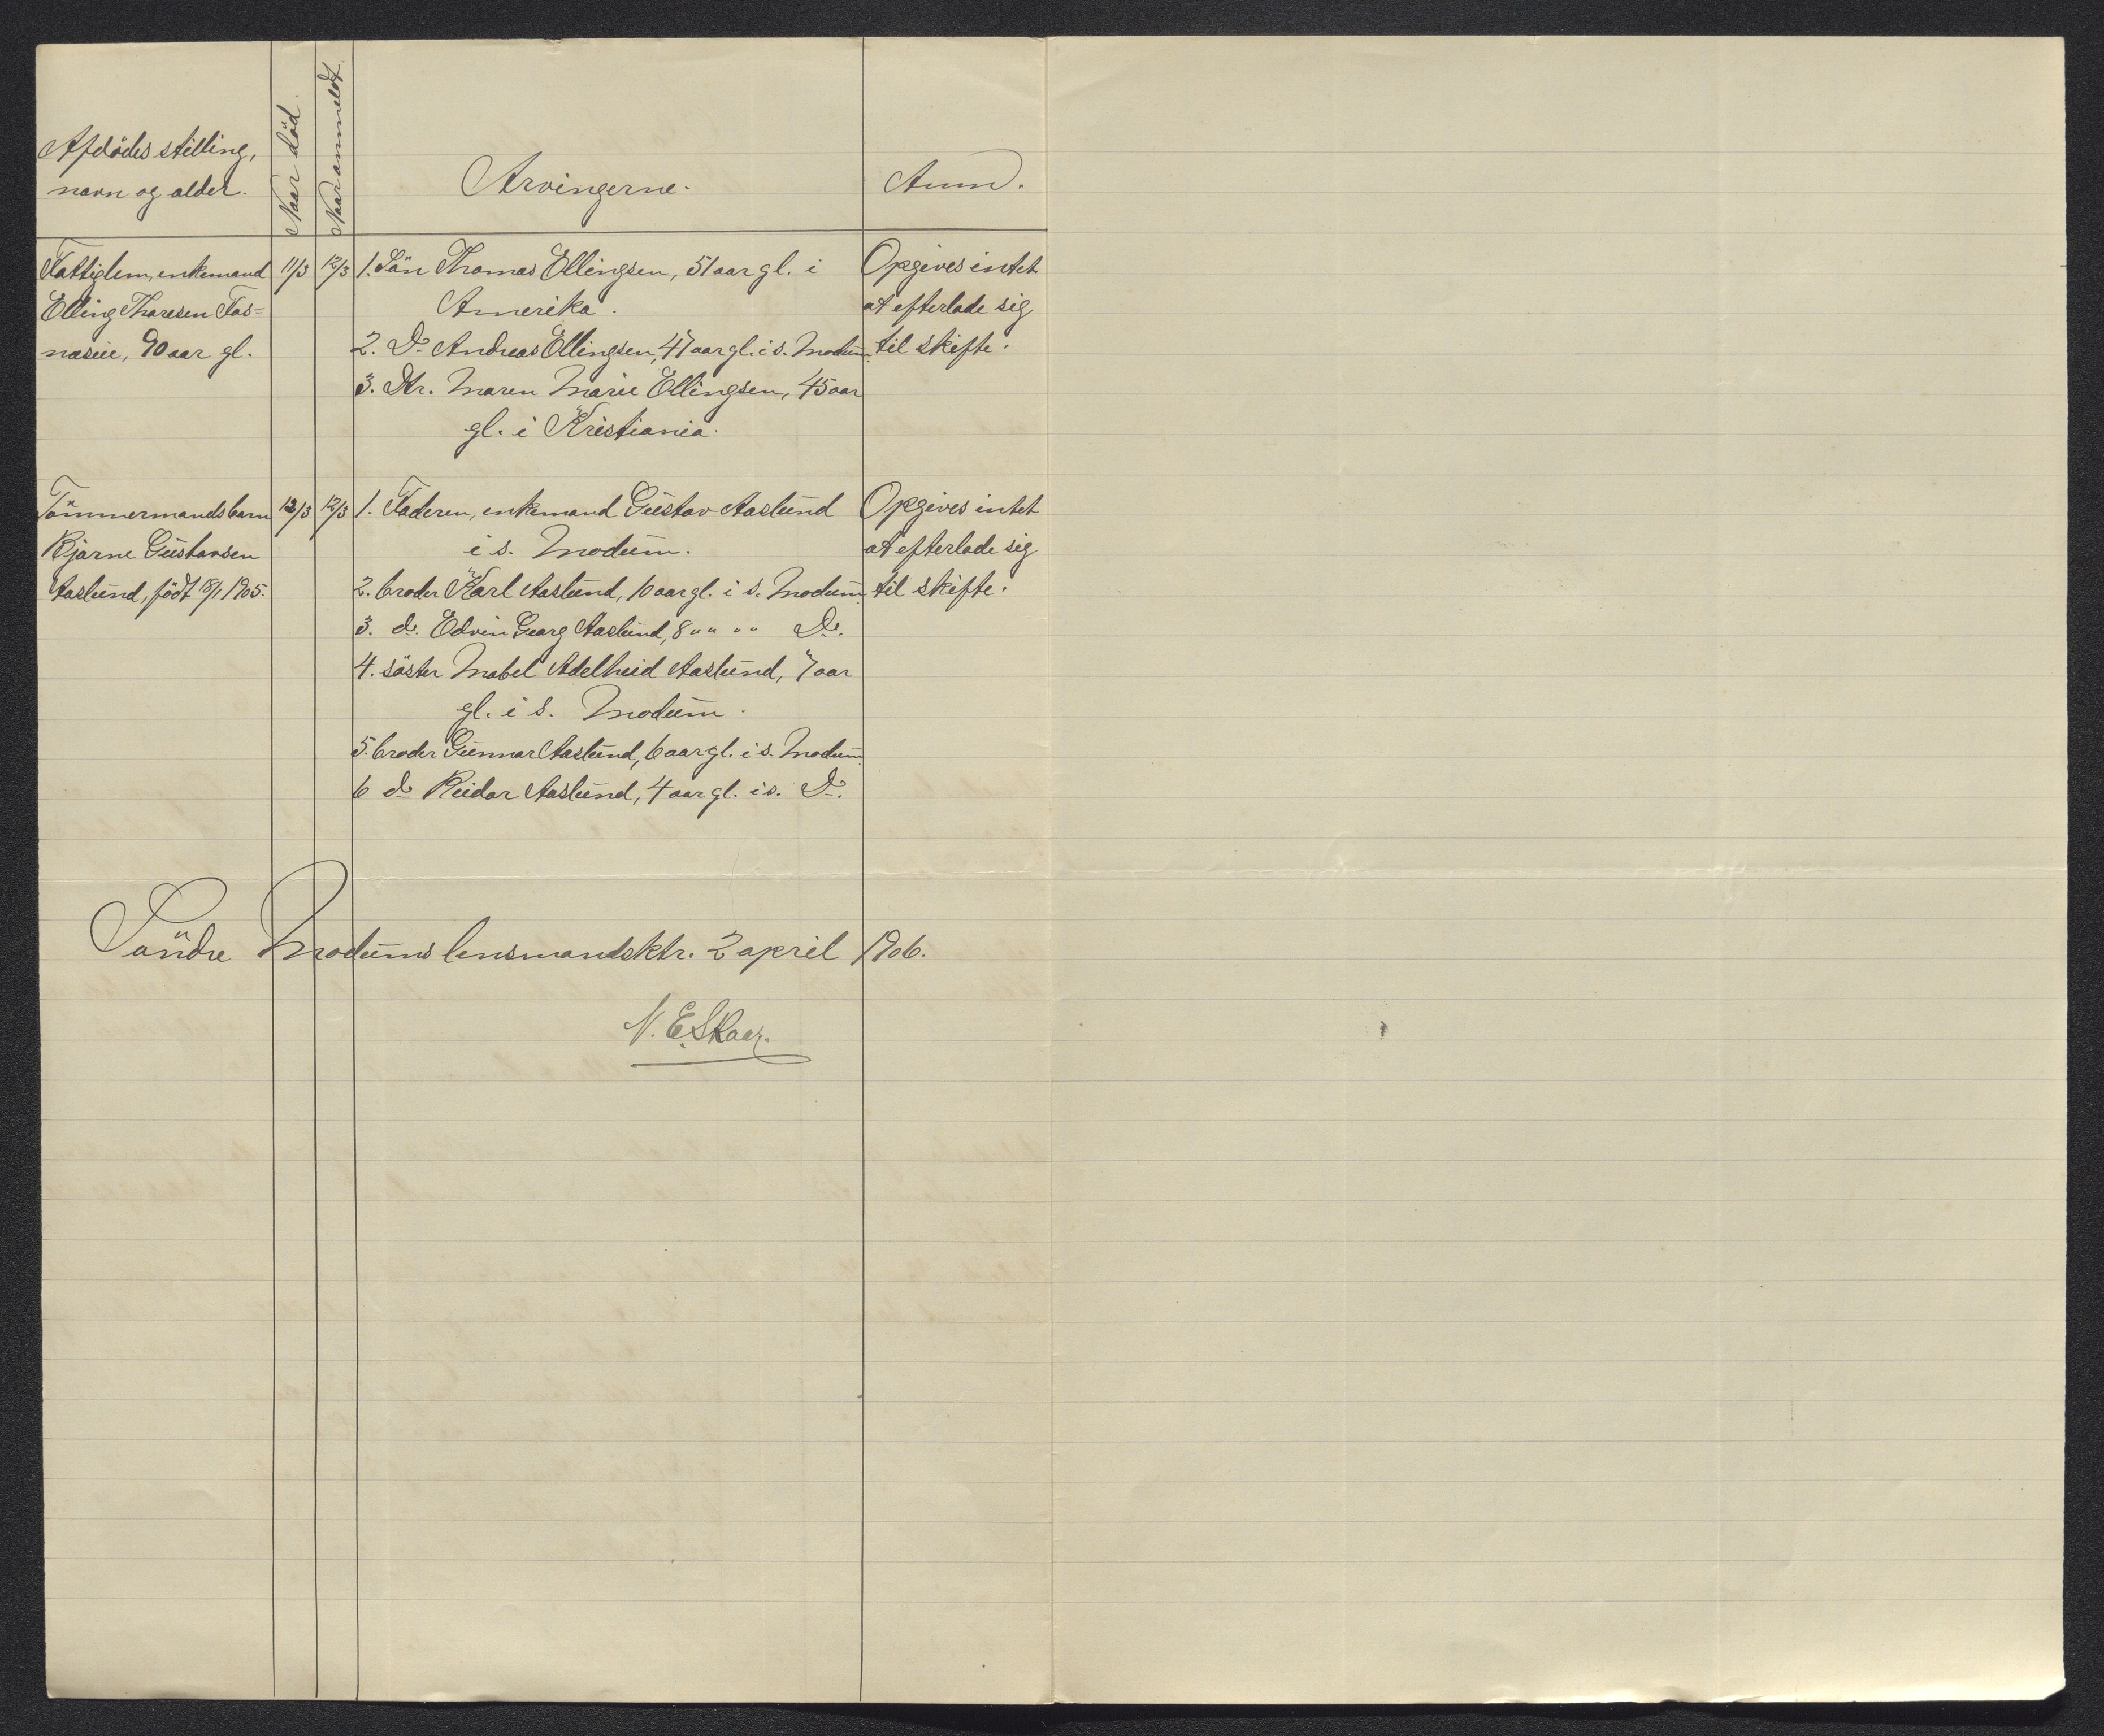 Afdödes stilling,
navn og alder.
Naar död.
Naar anmeldt.
Arvingerne.
Anm.
Fattiglem, enkemand
Elling Thoresen Fos=
næseie, 90 aar gl.
11/3
12/3
1. Sön Thomas Ellingsen, 51 aar gl. i
Amerika.
2. Do Andreas Ellingsen, 47 aar gl. i s. Modum.
3. Dtr. Maren Marie Ellingsen, 45 aar
gl. i Kristiania.
Opgives intet
at efterlade sig
til skifte.
Tömmermandsbarn
Bjarne Gustavsen
Aaslund, födt 18/1 1905.
12/3
12/3
1. Faderen, enkemand Gustav Aaslund
i s. Modum.
2. broder Karl Aaslund, 10 aar gl. i s. Modum.
3. do. Edvin Georg Aaslund, 8 " " " " Do.
4. söster Mabel Adelheid Aaslund, 7 aar
gl. i s. Modum.
5. broder Gunnar Aaslund, 6 aar gl. i s. Modum.
6 do Reidar Aaslund, 4 aar gl. i s. Do.
Opgives intet
at efterlade sig
til skifte.
Söndre Modums lensmandsktr. 2 april 1906.
N. E. Skaer.